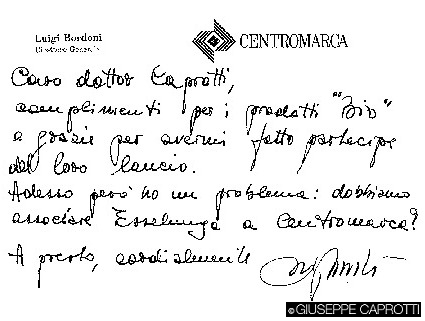 Luigi Bordoni
Direttore Generale
CENTROMARCA
Caro dottor Caprotti,
complimenti per i prodotti "Bio"
e grazie per avermi fatto partecipe
del loro lancio.
Adesso però ho un problema: dobbiamo
associare Esselunga a Centromarca?
A presto, cordialmente
© GIUSEPPE CAPROTTI